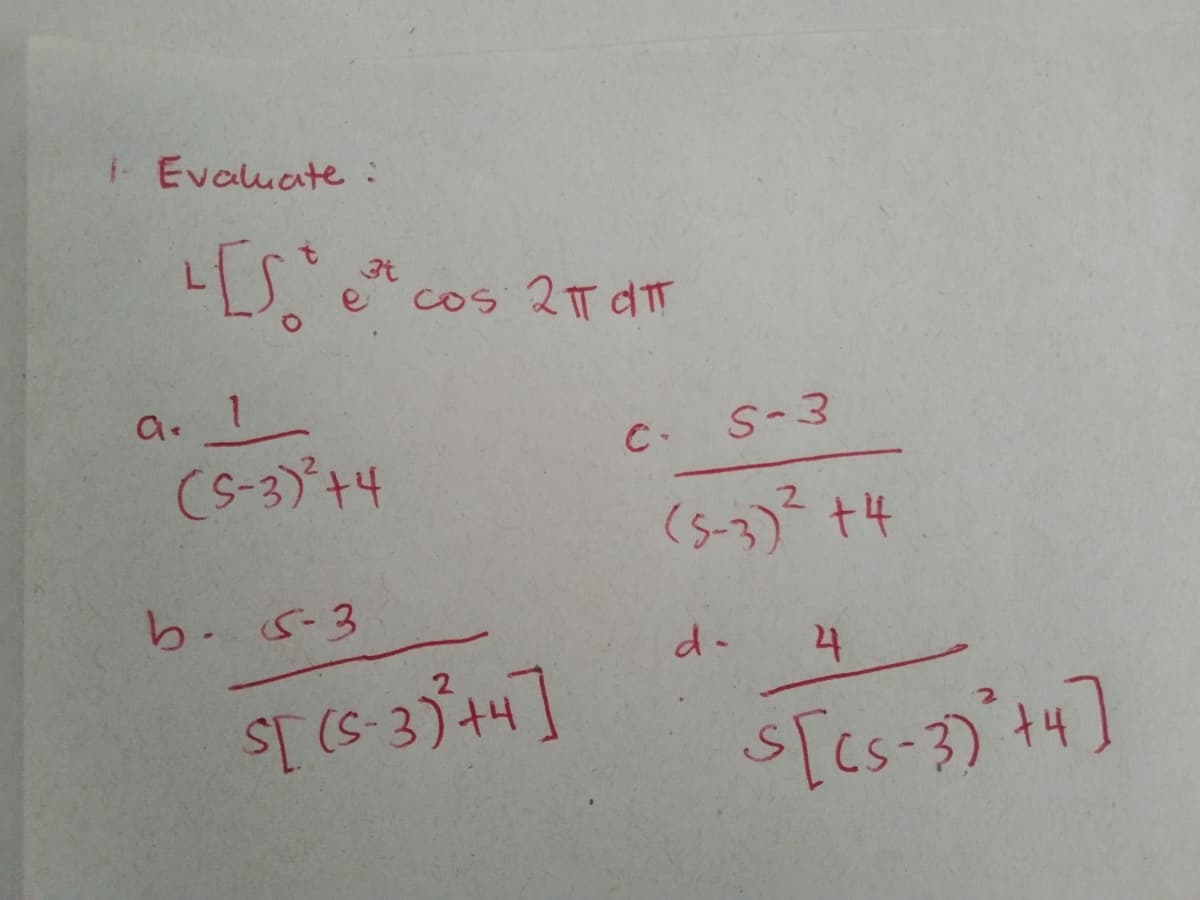 1. Evaluate :
L[∫₀ᵗ e³ᵗ cos 2π dπ
a. 1 / (S-3)²+4
c. S-3 / (S-3)² +4
b. S-3 / S[(S-3)²+4]
d. 4 / S[(S-3)²+4]